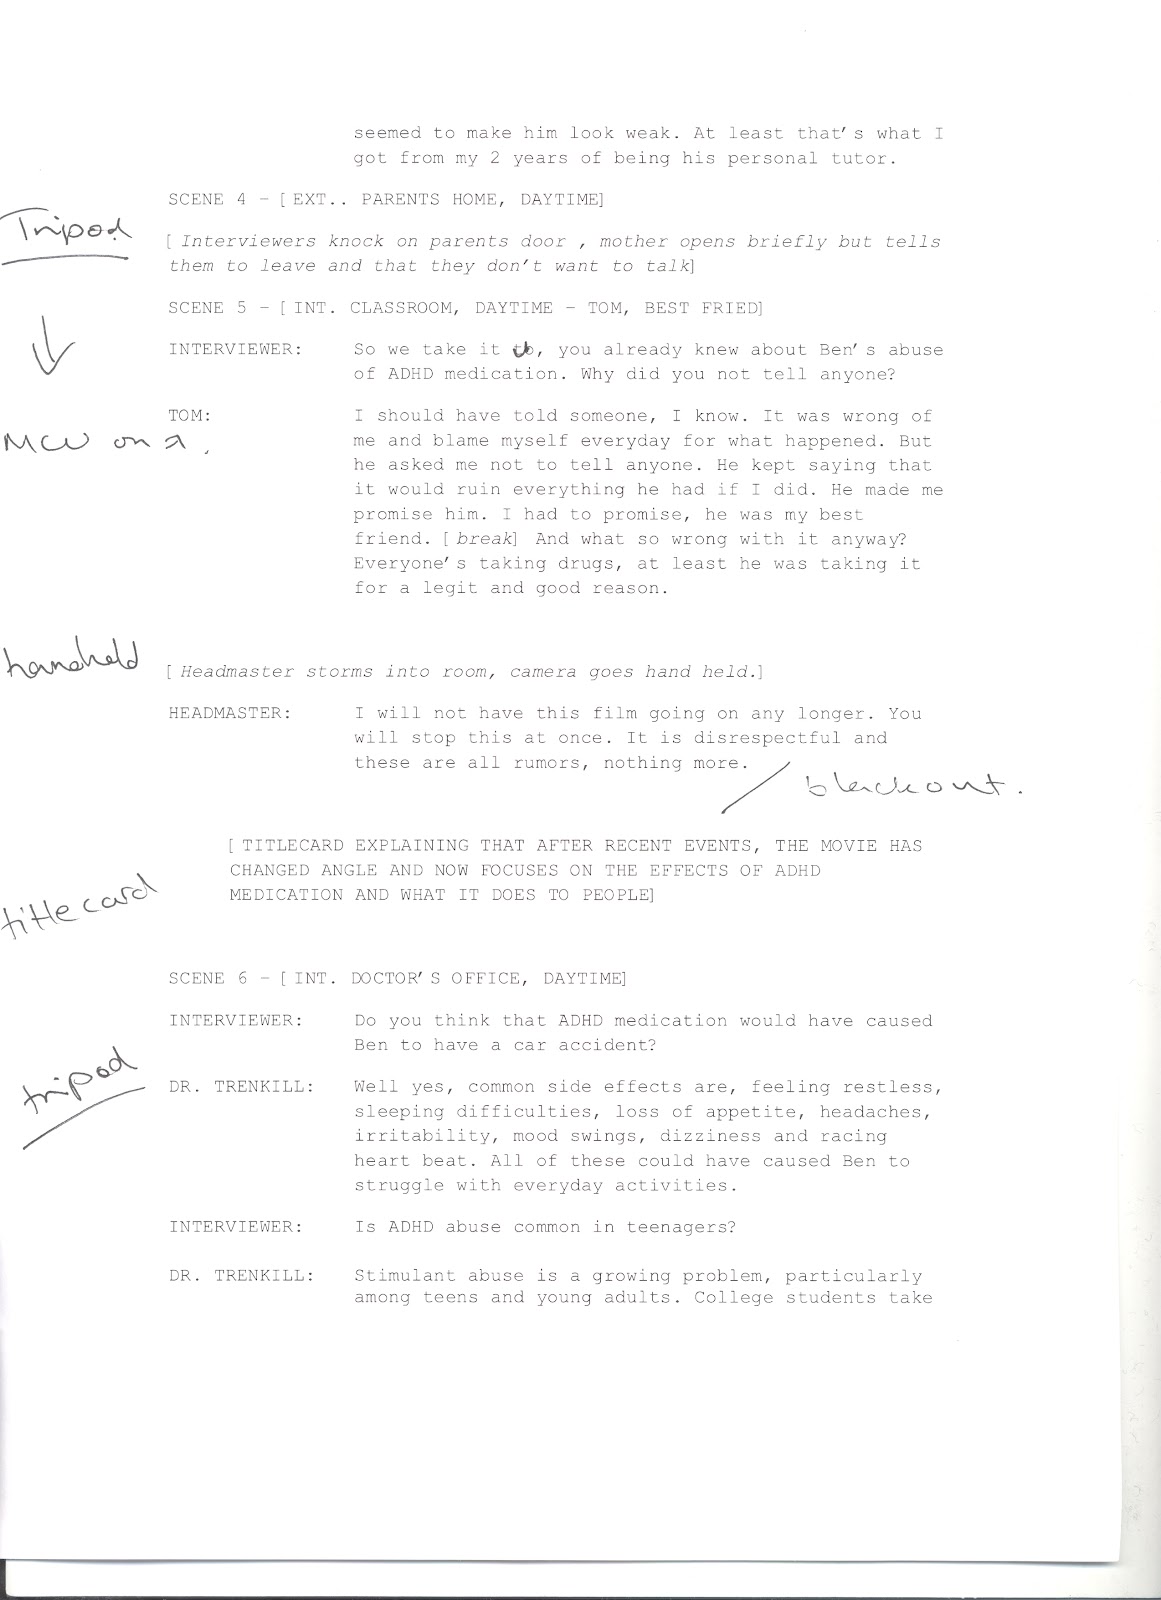 seemed to make him look weak. At least that's what I
got from my 2 years of being his personal tutor.
SCENE 4 – [EXT.. PARENTS HOME, DAYTIME]
Tripod
[Interviewers knock on parents door , mother opens briefly but tells
them to leave and that they don't want to talk]
SCENE 5 – [INT. CLASSROOM, DAYTIME – TOM, BEST FRIED]
INTERVIEWER: So we take it , you already knew about Ben's abuse
of ADHD medication. Why did you not tell anyone?
TOM: I should have told someone, I know. It was wrong of
MCU on
me and blame myself everyday for what happened. But
he asked me not to tell anyone. He kept saying that
it would ruin everything he had if I did. He made me
promise him. I had to promise, he was my best
friend. [break] And what so wrong with it anyway?
Everyone's taking drugs, at least he was taking it
for a legit and good reason.
handheld
[Headmaster storms into room, camera goes hand held.]
HEADMASTER: I will not have this film going on any longer. You
will stop this at once. It is disrespectful and
these are all rumors, nothing more.
/ blackout.
[TITLECARD EXPLAINING THAT AFTER RECENT EVENTS, THE MOVIE HAS
CHANGED ANGLE AND NOW FOCUSES ON THE EFFECTS OF ADHD
MEDICATION AND WHAT IT DOES TO PEOPLE]
titlecard
SCENE 6 – [INT. DOCTOR'S OFFICE, DAYTIME]
INTERVIEWER: Do you think that ADHD medication would have caused
Ben to have a car accident?
tripod
DR. TRENKILL: Well yes, common side effects are, feeling restless,
sleeping difficulties, loss of appetite, headaches,
irritability, mood swings, dizziness and racing
heart beat. All of these could have caused Ben to
struggle with everyday activities.
INTERVIEWER: Is ADHD abuse common in teenagers?
DR. TRENKILL: Stimulant abuse is a growing problem, particularly
among teens and young adults. College students take